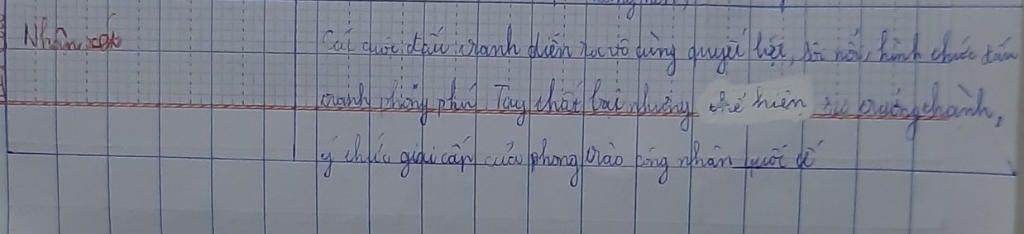 Nhận xét
Các cuộc đấu tranh diễn ra vô cùng quyết liệt, sôi nổi, hình thức đấu
tranh phong phú Tuy thất bại nhưng thể hiện sự trưởng thành,
ý thức giai cấp của phong trào công nhân quốc tế